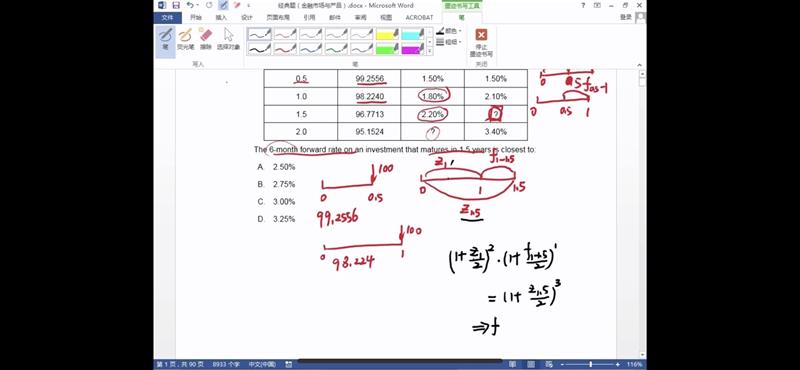 经典题(金融市场与产品).docx - Microsoft Word
墨迹书写工具
文件 开始 插入 设计 页面布局 引用 邮件 审阅 视图 ACROBAT 笔
登录
笔 荧光笔 橡皮擦 选择对象
颜色
粗细
停止
墨迹书写
写入 笔 关闭
0.5 99.2556 1.50% 1.50%
1.0 98.2240 1.80% 2.10%
1.5 96.7713 2.20% ?
2.0 95.1524 ? 3.40%
0 0.5 f0.5-1
0 0.5 1
The 6-month forward rate on an investment that matures in 1.5 years is closest to:
A. 2.50%
B. 2.75%
C. 3.00%
D. 3.25%
100
0 0.5
99.2556
100
0 1
98.224
z1 f1-1.5
0 1 1.5
z1.5
(1+z1/2)^2·(1+f1-1.5/2)^1
=(1+z1.5/2)^3
⇒f
第 1 页，共 90 页 8933 个字 中文(中国)
116%